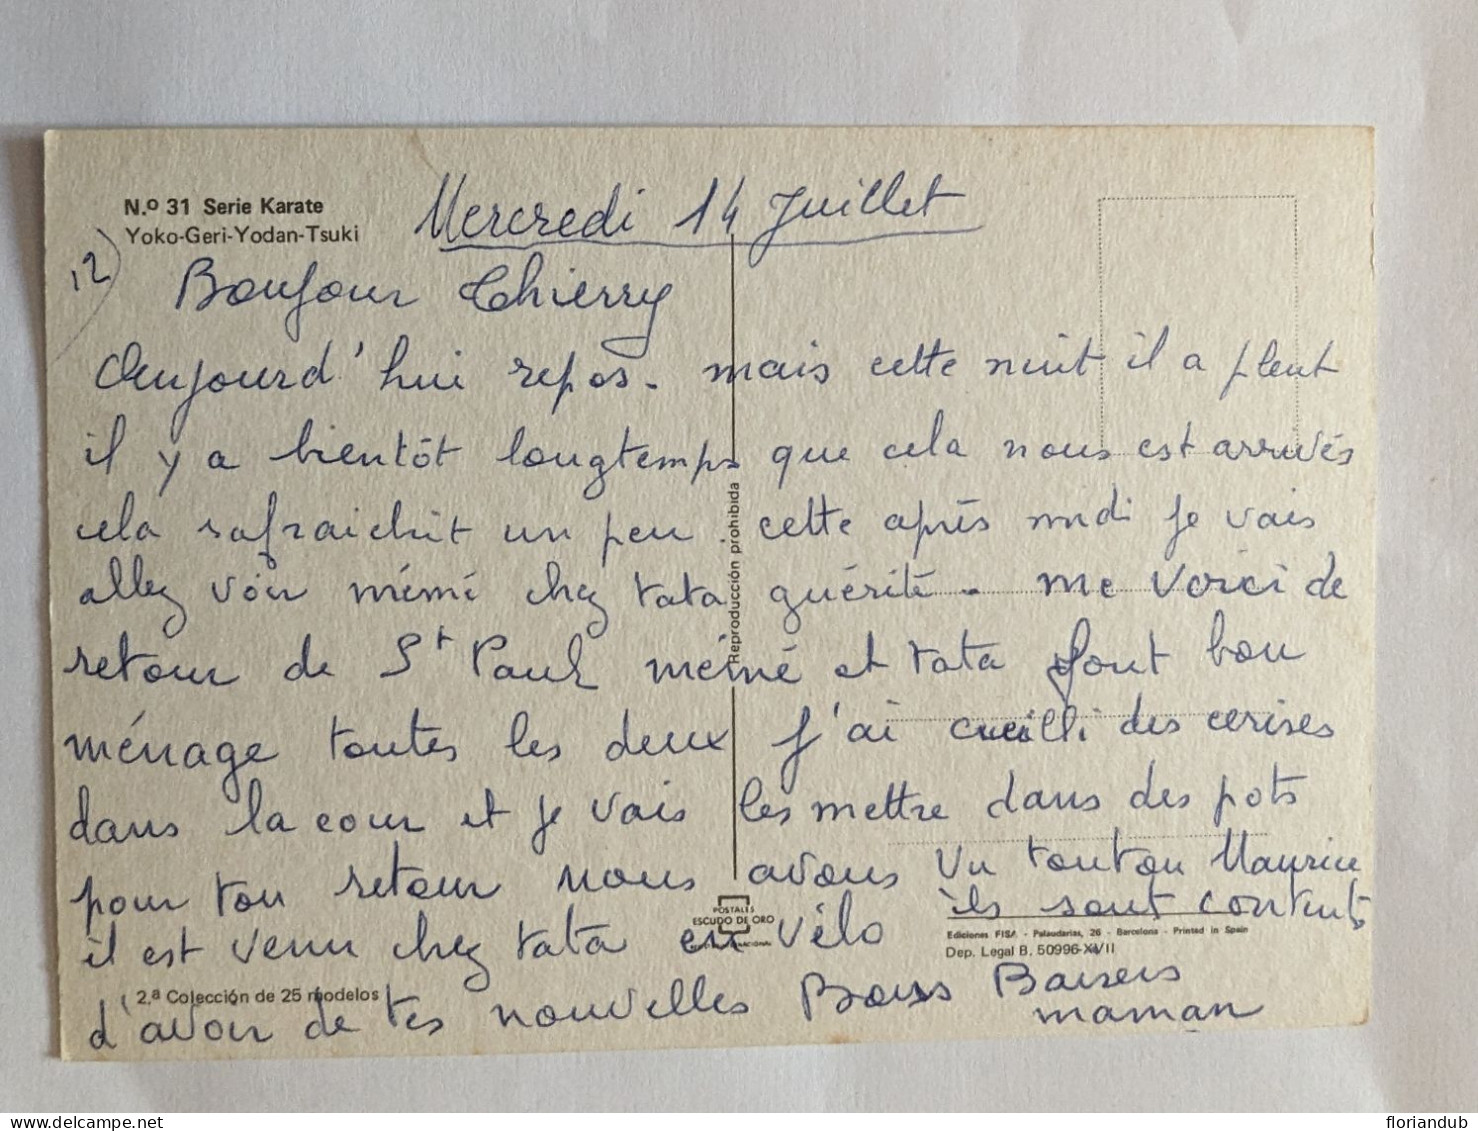 N.º 31 Serie Karate
Yoko-Geri-Yodan-Tsuki
Mercredi 14 Juillet
12)
Bonjour Thierry
Aujourd'hui repos. mais cette nuit il a pleut
il y a bientôt longtemps que cela nous est arrivés
cela rafraichit un peu. cette après midi je vais
allez voir mémé chez tata guérité. me voici de
retour de St Paul mémé et tata font bon
ménage toutes les deux j'ai cueilli des cerises
dans la cour et je vais les mettre dans des pots
pour ton retour nous avons vu tonton Maurice
il est venu chez tata en vélo ils sont contents
d'avoir de tes nouvelles Bons Baisers
maman
Reproducción prohibida
POSTALES
ESCUDO DE ORO
Ediciones FISA - Palaudarias, 26 - Barcelona - Printed in Spain
Dep. Legal B. 50996-XVII
2.ª Colección de 25 modelos
delcampe.net
floriandub